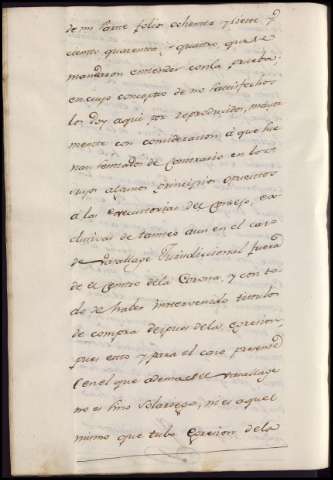 de mi Parte folio ochenta y siete y
ciento quarenta, y quatro, que se
mandaron entender con la prueba;
en cuyo concepto de no satisfechos
los doy aqui por reproducidos, mayor
mente con consideracion, á que fue
ron fundados de contrario en los es
cusos algunos principios opuestos
a las executorias del Consejo, ex
clusivas de tanteo aun en el caso
de Vasallage Jurisdiccional fuera
de el Centro dela Corona, y con to
do de haber intervenido titulos
de compra despues dela egresion,
pues esto y para el caso presente
(en el que ademas el Vasallage
no es sino Solariego, ni es aquel
mismo que tubo egresion dela